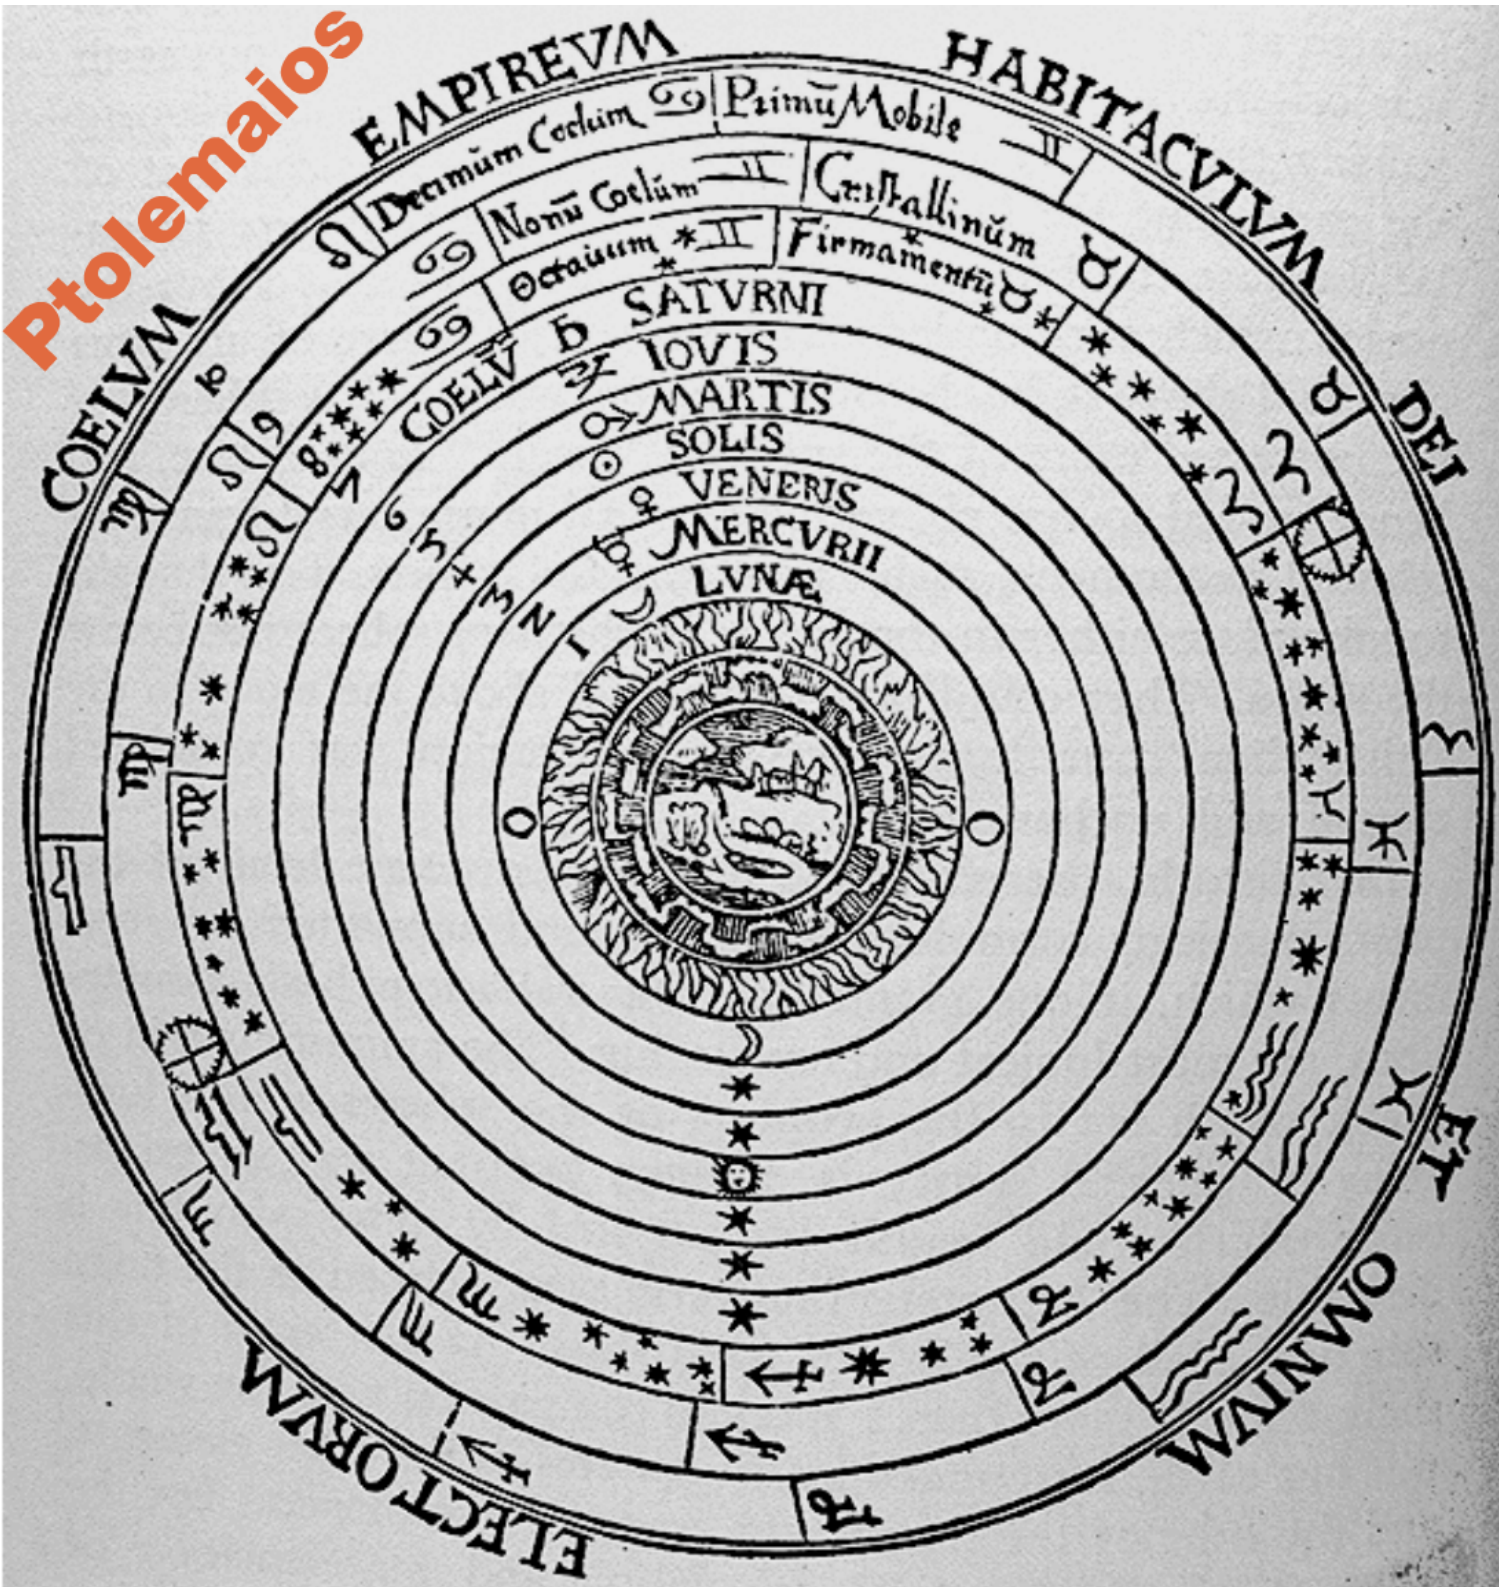 Ptolemaios
COELVM EMPIREVM HABITACVLVM DEI ET OMNIVM ELECTORVM
Decimūm Coelum ♋ Primū Mobile ♊
Nonū Coelūm ♊ Cristallinūm ♉
Octauum ♊ Firmamentū ♉
COELV̄ ♄ SATVRNI
♃ IOVIS
♂ MARTIS
☉ SOLIS
♀ VENERIS
☿ MERCVRII
☽ LVNÆ
9
8
7
6
5
4
3
2
1